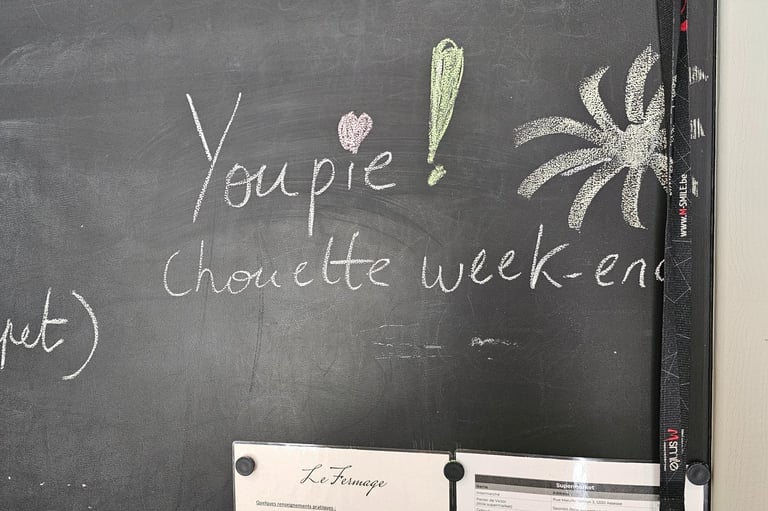 Youpie !
Chouette week-end
pet)
www.M-SMILE.be
M smile
Le Fermage
Quelques renseignements pratiques :
Supermarket
Name
Intermarché